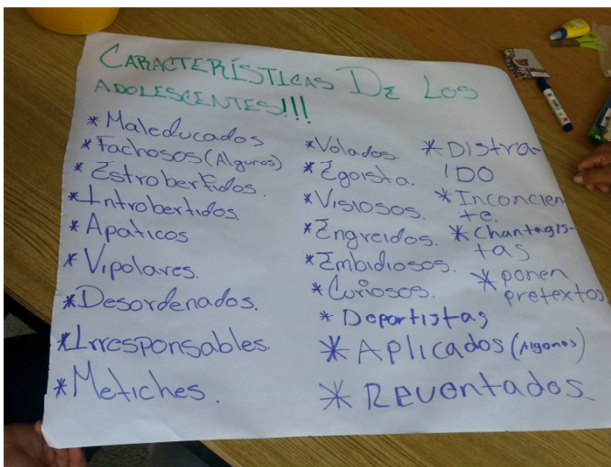 CARACTERÍSTICAS DE LOS
ADOLESCENTES!!!
* Maleducados
* Fachosos (Algunos)
* Estrobertidos.
* Introbertidos
* Apaticos
* Vipolares.
* Desordenados.
* Irresponsables.
* Metiches.
* Volados.
* Egoista.
* Visiosos.
* Engreidos.
* Embidiosos.
* Curiosos.
* Deportistas
* Aplicados (Algonos)
* Reventados
* Distra-
IDO
* Inconcien-
te.
* Chantagis-
tas
* ponen
pretextos